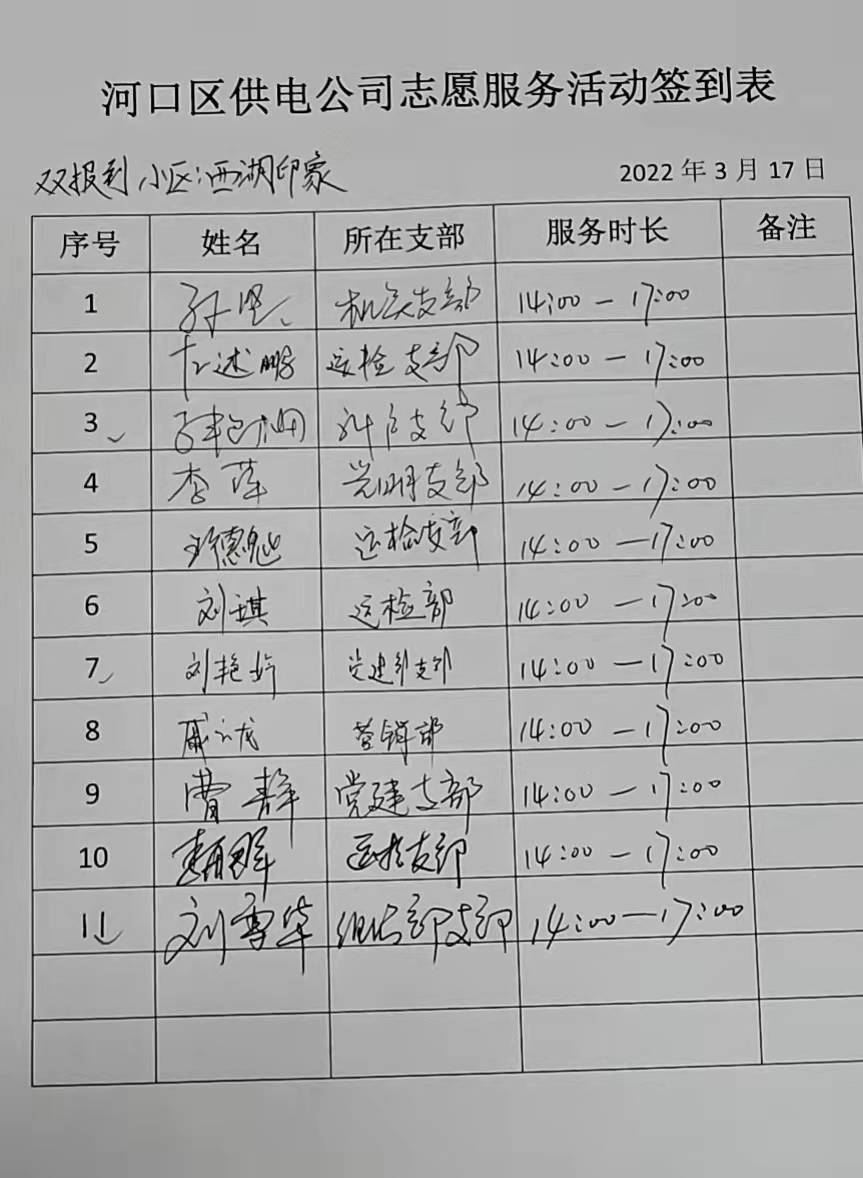 河口区供电公司志愿服务活动签到表
双报到小区:西湖印象 2022年3月17日
序号 姓名 所在支部 服务时长 备注
1 机关支部 14:00-17:00
2 述鹏 运检支部 14:00-17:00
3 支部 14:00-17:00
4 李萍 光明支部 14:00-17:00
5 德勉 运检支部 14:00-17:00
6 刘琪 运检部 14:00-17:00
7 刘艳娇 党建部支部 14:00-17:00
8 龙 营销部 14:00-17:00
9 曹静 党建支部 14:00-17:00
10 运检支部 14:00-17:00
11 刘雪华 组织部支部 14:00-17:00